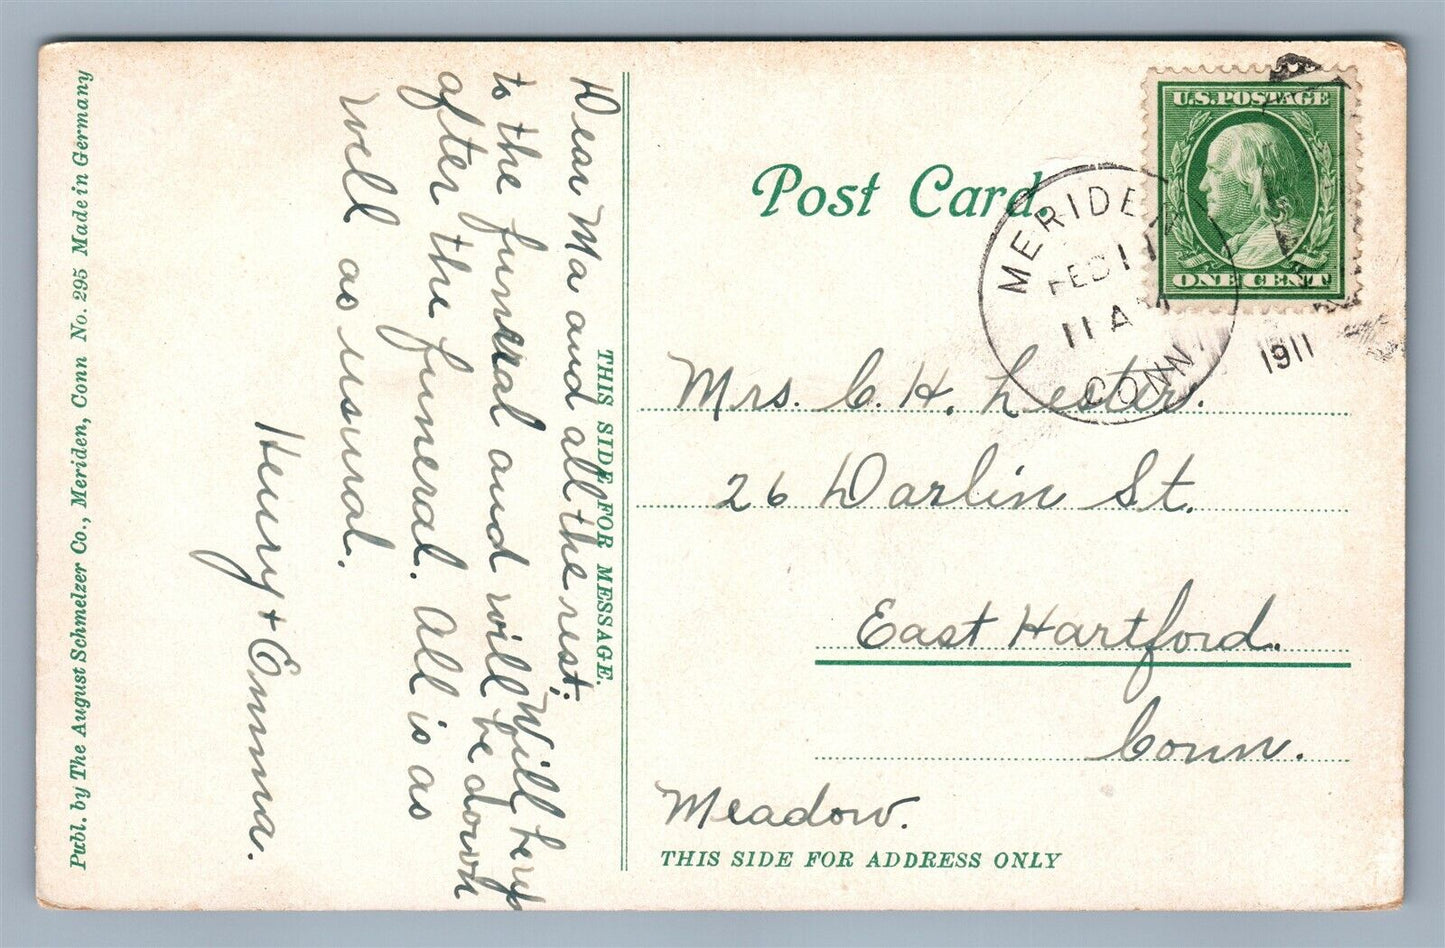 Publ. by The August Schmelzer Co., Meriden, Conn No. 295 Made in Germany
Dear Ma and all the rest; Will be up
to the funeral and will be down
after the funeral. All is as
well as usual.
Henry + Emma.
THIS SIDE FOR MESSAGE.
Post Card.
U.S. POSTAGE
ONE CENT
MERIDEN
FEB 11
11 AM
CONN.
1911
Mrs. C. H. Lester.
26 Darlin St.
East Hartford.
Conn.
Meadow.
THIS SIDE FOR ADDRESS ONLY